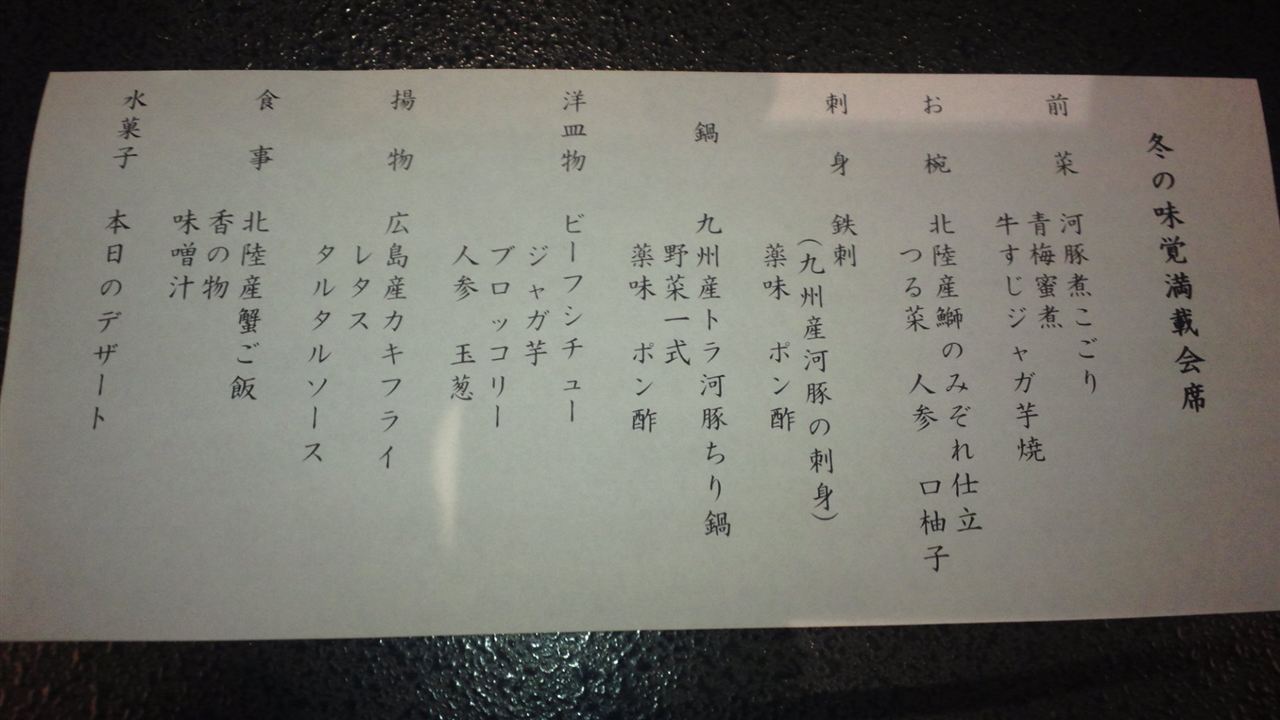 冬の味覚満載会席
前菜 河豚煮こごり
青梅蜜煮
牛すじジャガ芋焼
お椀 北陸産鰤のみぞれ仕立
つる菜 人参 口柚子
刺身 鉄刺
(九州産河豚の刺身)
薬味 ポン酢
鍋 九州産トラ河豚ちり鍋
野菜一式
薬味 ポン酢
洋皿物 ビーフシチュー
ジャガ芋
ブロッコリー
人参 玉葱
揚物 広島産カキフライ
レタス
タルタルソース
食事 北陸産蟹ご飯
香の物
味噌汁
水菓子 本日のデザート